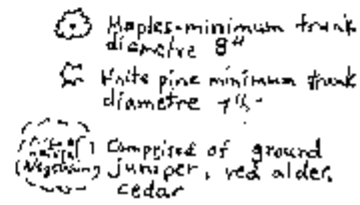 Maples-minimum trunk
diametre 8"
White pine minimum trunk
diametre
Comprised of ground
juniper, red alder,
cedar